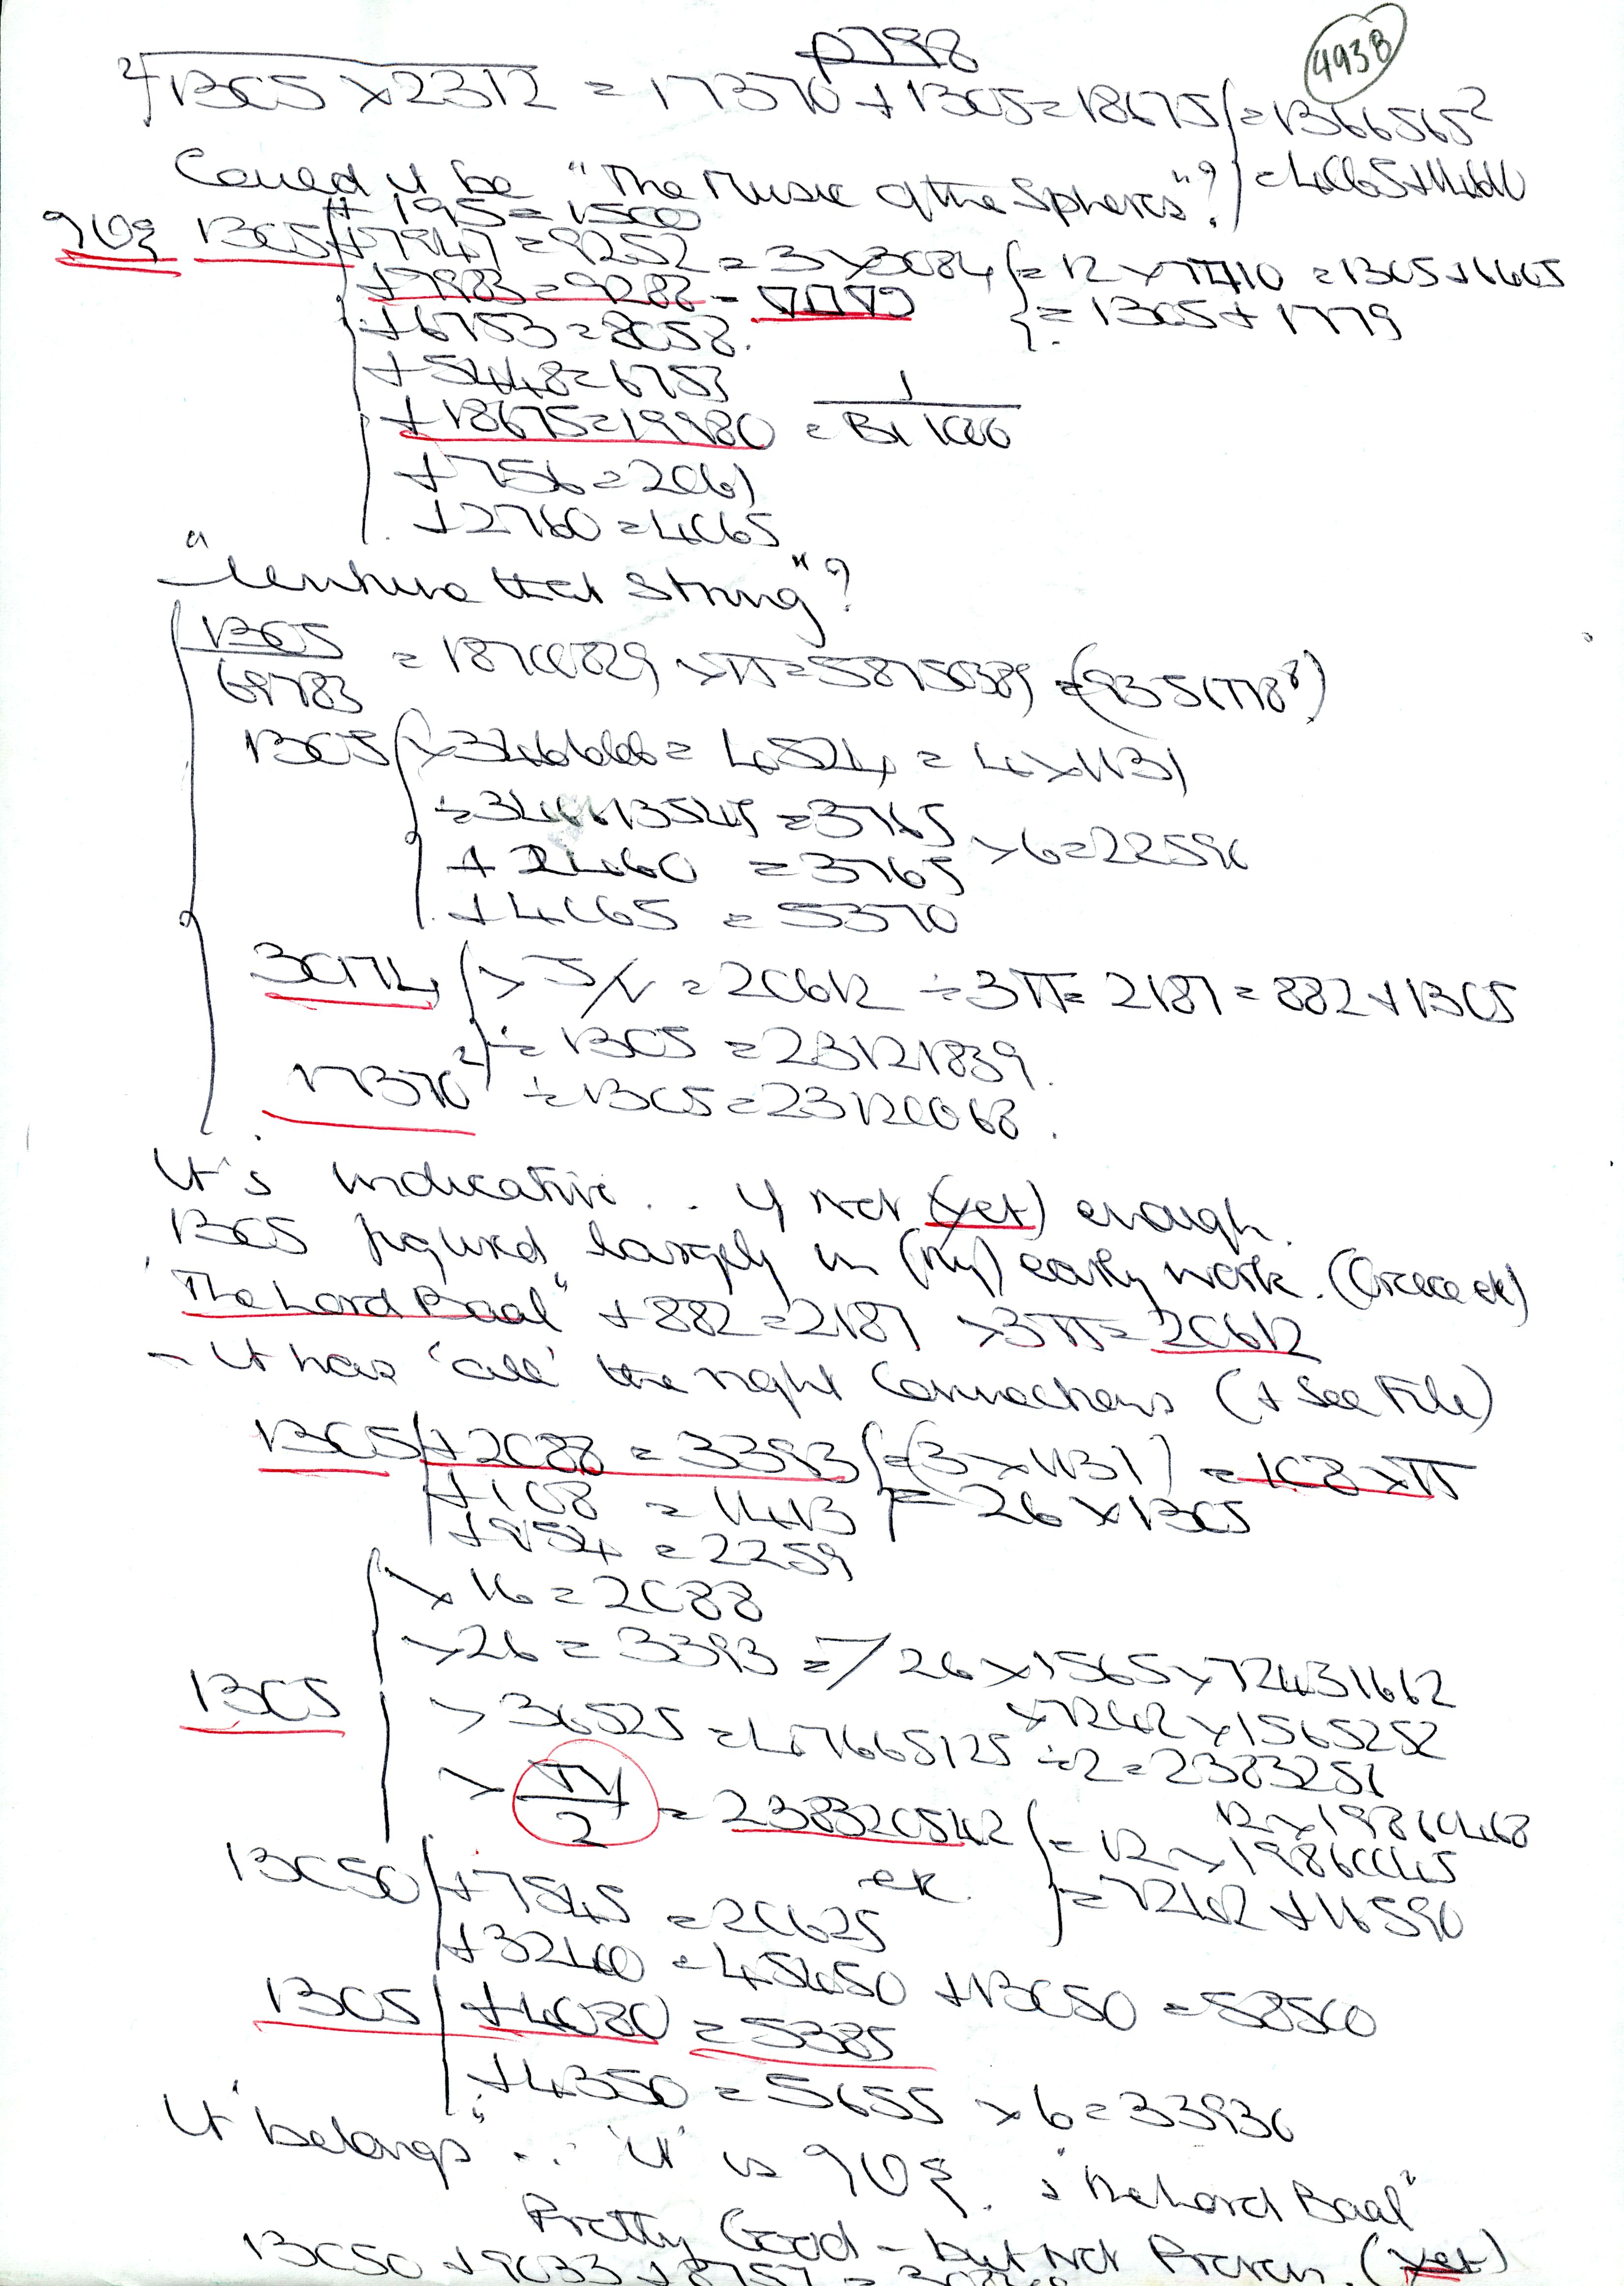 p798
4938
²√1305 × 2312 = 17370 + 1305 = 18675 = 1366565²
Could it be "The Music of the Spheres"? = 4065 + 14610
+ 195 = 1500
1305 + 7947 = 9252 = 3 × 3084 = 12 × 7710 = 1305 + 6405
+ 7983 = 9288 = = 1305 + 1779
+ 6753 = 8058.
+ 5448 = 6753
+ 18675 = 19980 =
+ 756 = 2061
+ 2760 = 4065
that string"?
1305/69783 = 18700829 × π = 58750389 = (93551778⁸)
1305 × 346666 = 4524 = 4 × 1131
÷ 346613545 = 3765
+ 2460 = 3765 × 6 = 22590
+ 4065 = 5370
= 20612 ÷ 3π = 2187 = 882 + 1305
÷ 1305 = 23121839.
17370² ÷ 1305 = 23120068.
It's indicative.. if not (yet) enough.
1305 figured largely in (my) early work. (Greece etc)
"The Lord Baal" + 882 = 2187 × 3π = 20612
- It has 'all' the right connections (+ See File)
1305 + 2088 = 3393 = (3 × 1131) = 108 × π
+ 108 = 1413 = 26 × 1305
+ 954 = 2259
× 16 = 2088
× 26 = 3393 = 26 × 1565 × 72431662
1305 × 36525 = 47665125 ÷ 2 = 2383257
× 7242 × 1565252
2 = 238320542 = 12 × 19860045
12 × 19860468
13050 + 7545 = 20625 etc. = 7242 + 16590
+ 32400 = 45450 + 13050 = 58500
1305 + 4080 = 5385
+ 4350 = 5655 × 6 = 33930
It "belongs"... 'it' is "The Lord Baal"
Pretty Good - but not Proven. (Yet)
13050 + 9033 + 8757 =